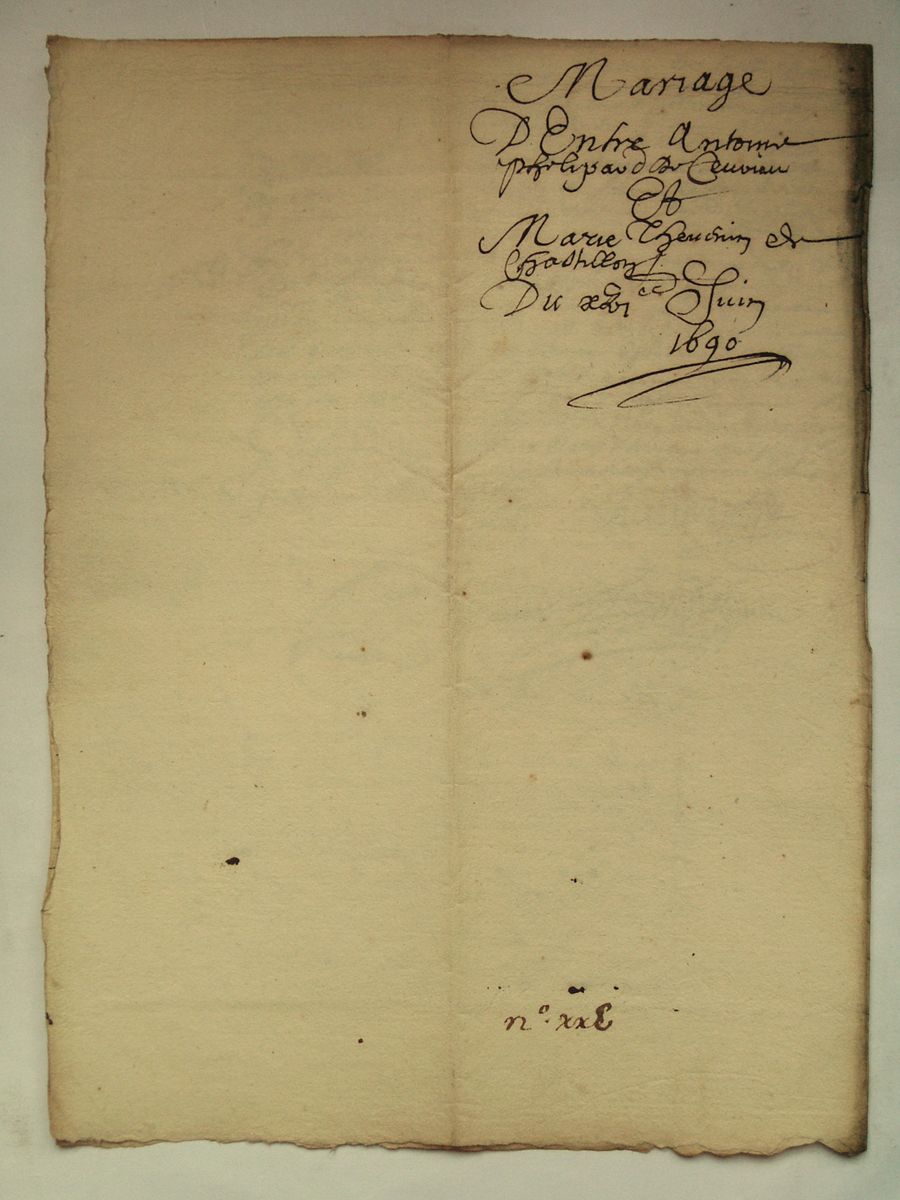 Mariage
D'Entre Antoine
phelipaud de
Et
Marie Theuenin de
Chastillon
Du xvi Juin
1690
n.º xxi